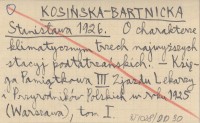 KOSIŃSKA-BARTNICKA
Stanisława 1926. O charakterze
klimatycznym trzech najwyższych
stacyj podtatrzańskich. – Księ-
ga Pamiątkowa III Zjazdu Lekarzy
i Przyrodników Polskich w roku 1925
(Warszawa), tom I.